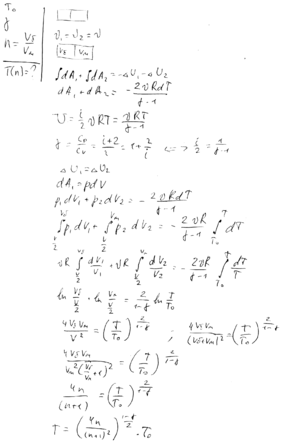 T₀
γ
n = Vб/Vм
T(n) = ?
ν₁ = ν₂ = ν
Vб | Vм
∫dA₁ + ∫dA₂ = -ΔU₁ - ΔU₂
dA₁ + dA₂ = - 2νRdT/(γ-1)
U = i/2 νRT = νRT/(γ-1)
γ = Cp/Cv = (i+2)/i = 1 + 2/i <=> i/2 = 1/(γ-1)
ΔU₁ = ΔU₂
dA₁ = pdV
p₁dV₁ + p₂dV₂ = - 2νRdT/(γ-1)
∫_{V/2}^{Vб} p₁dV₁ + ∫_{V/2}^{Vм} p₂dV₂ = - 2νR/(γ-1) ∫_{T₀}^{T} dT
νR ∫_{V/2}^{Vб} dV₁/V₁ + νR ∫_{V/2}^{Vм} dV₂/V₂ = - 2νR/(γ-1) ∫_{T₀}^{T} dT/T
ln Vб/(V/2) · ln Vм/(V/2) = 2/(1-γ) ln T/T₀
4VбVм/V² = (T/T₀)^{2/(1-γ)} ; 4VбVм/(Vб+Vм)² = (T/T₀)^{2/(1-γ)}
4VбVм/(Vм²(Vб/Vм+1)²) = (T/T₀)^{2/(1-γ)}
4n/(n+1)² = (T/T₀)^{2/(1-γ)}
T = (4n/(n+1)²)^{(1-γ)/2} · T₀